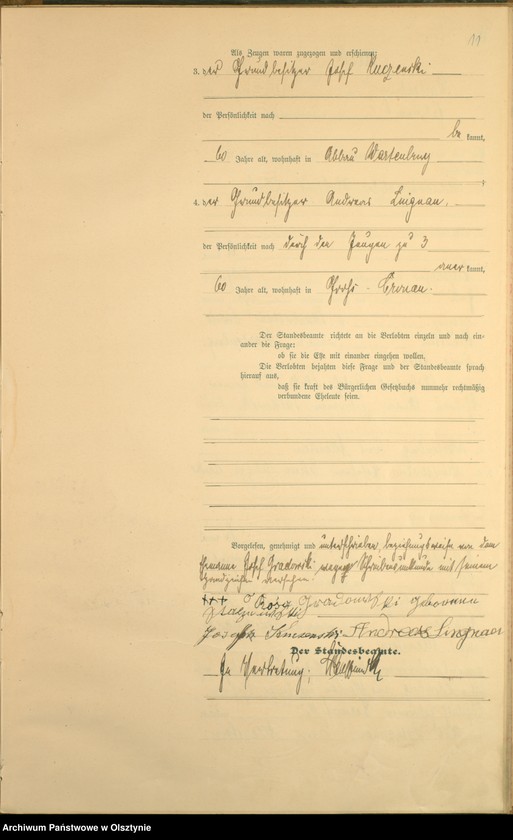 11
Als Zeugen waren zugezogen und erschienen:
3. der Grundbesitzer Josef
der Persönlichkeit nach
be kannt,
60 Jahre alt, wohnhaft in Abbau Wartenburg
;
4. der Grundbesitzer Andreas Lingnau.
der Persönlichkeit nach durch den Zeugen zu 3
aner kannt,
60 Jahre alt, wohnhaft in Groß-Cronau.
Der Standesbeamte richtete an die Verlobten einzeln und nach ein-
ander die Frage:
ob sie die Ehe mit einander eingehen wollen.
Die Verlobten bejahten diese Frage und der Standesbeamte sprach
hierauf aus,
daß sie kraft des Bürgerlichen Gesetzbuchs nunmehr rechtmäßig
verbundene Eheleute seien.
Vorgelesen, genehmigt und unterschrieben, beziehungsweise von dem
Ehemanne Josef Gradowski wegen Schreibensunkunde mit seinem
Handzeichen versehen.
+++ Rosa Gradowski geborene
Andreas Lingnau
Der Standesbeamte.
In Vertretung:
Archiwum Państwowe w Olsztynie